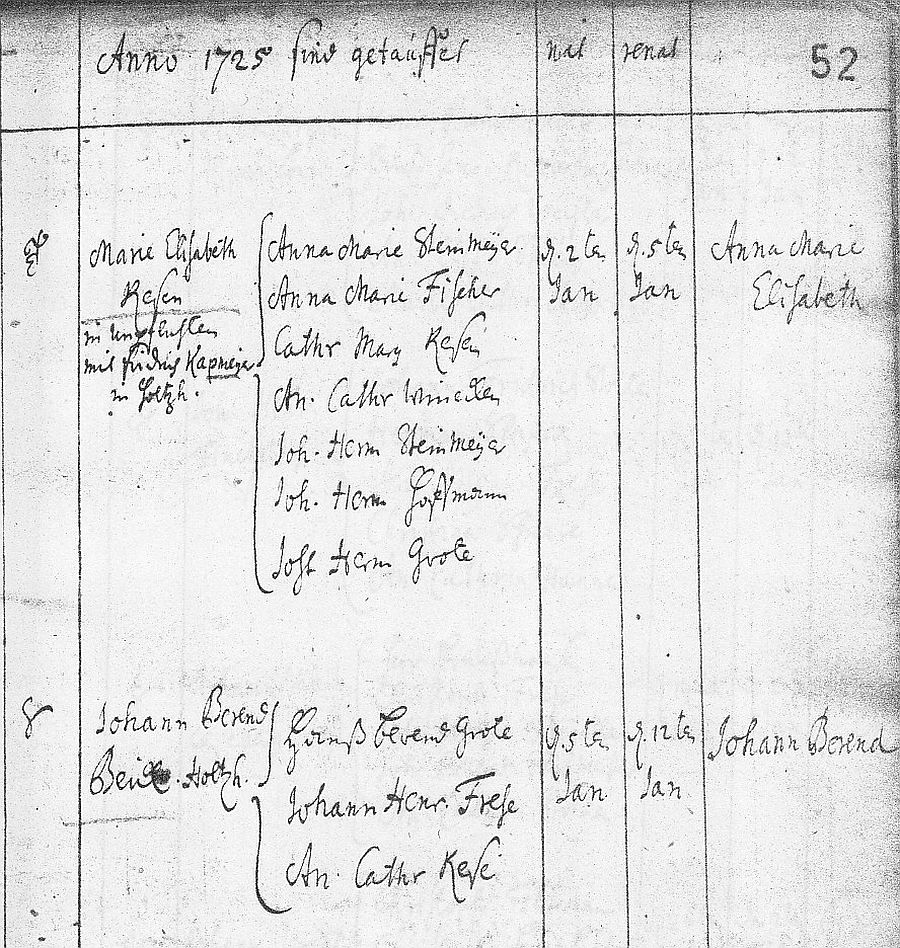 Anno 1725 sind getauffet nat renat 52
Marie Elisabeth
Resen
in
mit Kapmeyer
in Holtzh.
Anna Marie Steinmeyer
Anna Marie Fischer
Cathr Marg Resen
An. Cathr
Joh. Herm Steinmeyer
Joh. Herm Hoffmann
Jost Herm Grote
d. 2ten
Jan
d. 5ten
Jan
Anna Marie
Elisabeth
8
Johann Berend
Holtzh.
Hanß Berend Grote
Johann Henr. Frese
An. Cathr Rese
d. 5ten
Jan
d. 12ten
Jan
Johann Berend